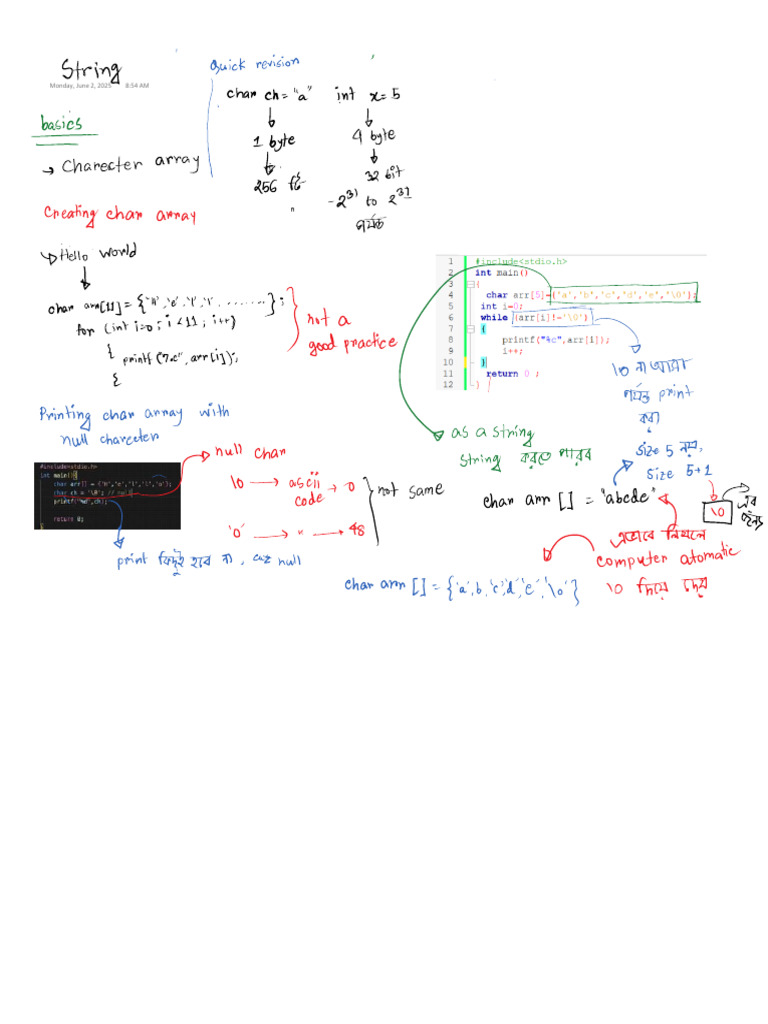 String
Monday, June 2, 2025 8:54 AM
Quick revision
char ch = "a" int x = 5
1 byte 4 byte
256 টি 32 bit
"
-2^31 to 2^31
পর্যন্ত
basics
→ Charecter array
Creating char array
Hello world
char arr[11] = {'H','e','l','l',.......};
for (int i=0; i<11; i++)
{
printf("%c", arr[i]);
{
not a
good practice
Printing char array with
null charecter
#include<stdio.h>
int main(){
char arr[] = {'H','e','l','l','o'};
char ch = '\0'; // null
printf("%d",ch);
return 0;
null char
\0 → ascii code → 0
'0' → " → 48
not same
print কিছুই হবে না, cuz null
1 #include<stdio.h>
2 int main()
3 {
4 char arr[5]={'a','b','c','d','e','\0'};
5 int i=0;
6 while (arr[i]!='\0')
7 {
8 printf("%c",arr[i]);
9 i++;
10 }
11 return 0 ;
12 }
\0 না আসা
পর্যন্ত print
করা
as a string
string করতে পারব
size 5 নয়,
size 5+1
\0
এর
জন্য
char arr [] = "abcde"
এভাবে লিখলে
computer atomatic
\0 দিয়ে দেয়
char arr [] = {'a','b,'c','d','e','\0'}